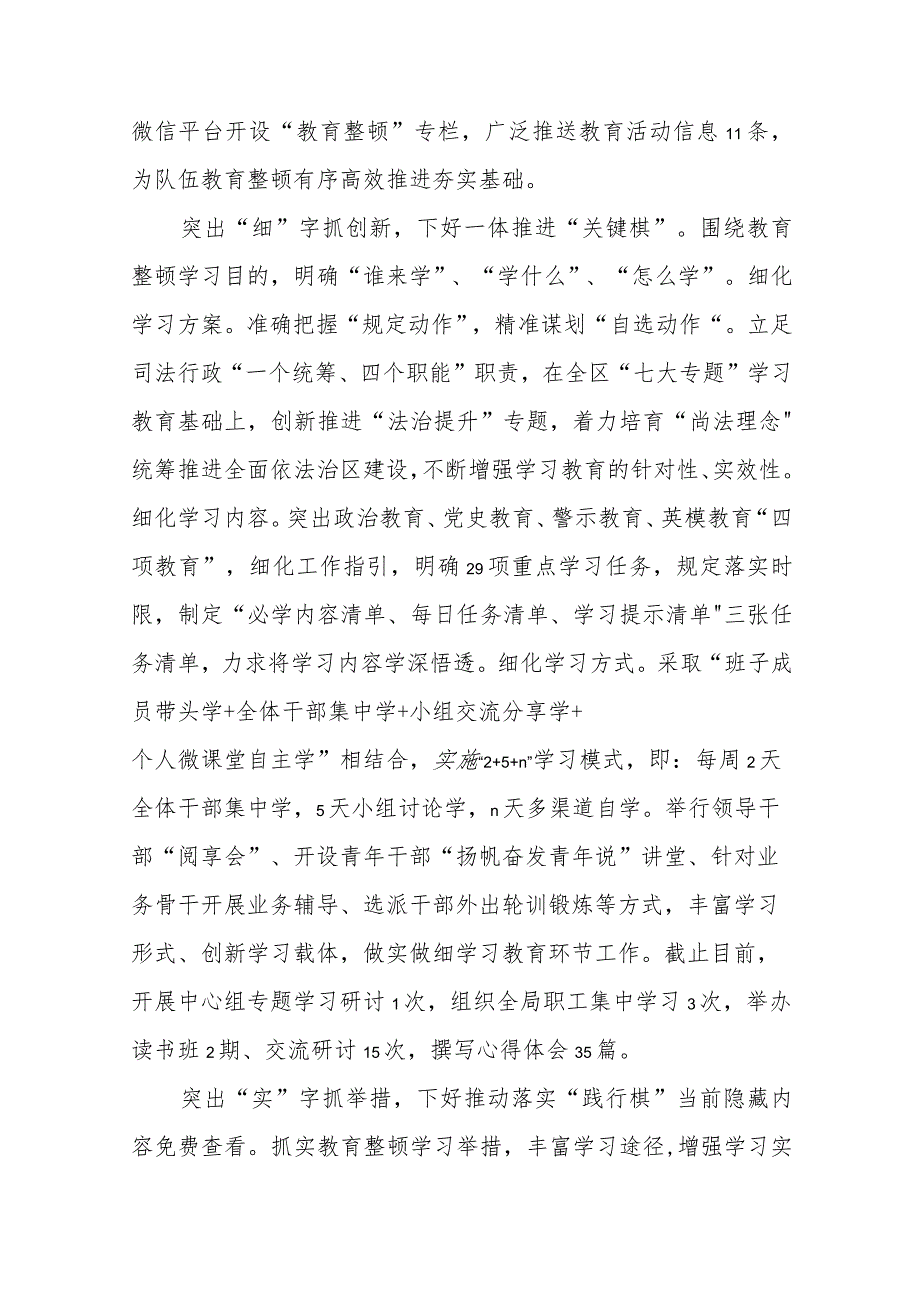 微信平台开设“教育整顿”专栏，广泛推送教育活动信息11条，
为队伍教育整顿有序高效推进夯实基础。
突出“细”字抓创新，下好一体推进“关键棋”。围绕教育
整顿学习目的，明确“谁来学”、“学什么”、“怎么学”。细化
学习方案。准确把握“规定动作”，精准谋划“自选动作“。立足
司法行政“一个统筹、四个职能”职责，在全区“七大专题”学习
教育基础上，创新推进“法治提升”专题，着力培育“尚法理念"
统筹推进全面依法治区建设，不断增强学习教育的针对性、实效性。
细化学习内容。突出政治教育、党史教育、警示教育、英模教育“四
项教育”，细化工作指引，明确29项重点学习任务，规定落实时
限，制定“必学内容清单、每日任务清单、学习提示清单"三张任
务清单，力求将学习内容学深悟透。细化学习方式。采取“班子成
员带头学+全体干部集中学+小组交流分享学+
个人微课堂自主学”相结合，实施“2+5+n”学习模式，即：每周2天
全体干部集中学，5天小组讨论学，n天多渠道自学。举行领导干
部“阅享会”、开设青年干部“扬帆奋发青年说”讲堂、针对业
务骨干开展业务辅导、选派干部外出轮训锻炼等方式，丰富学习
形式、创新学习载体，做实做细学习教育环节工作。截止目前，
开展中心组专题学习研讨1次，组织全局职工集中学习3次，举办
读书班2期、交流研讨15次，撰写心得体会35篇。
突出“实”字抓举措，下好推动落实“践行棋”当前隐藏内
容免费查看。抓实教育整顿学习举措，丰富学习途径,增强学习实